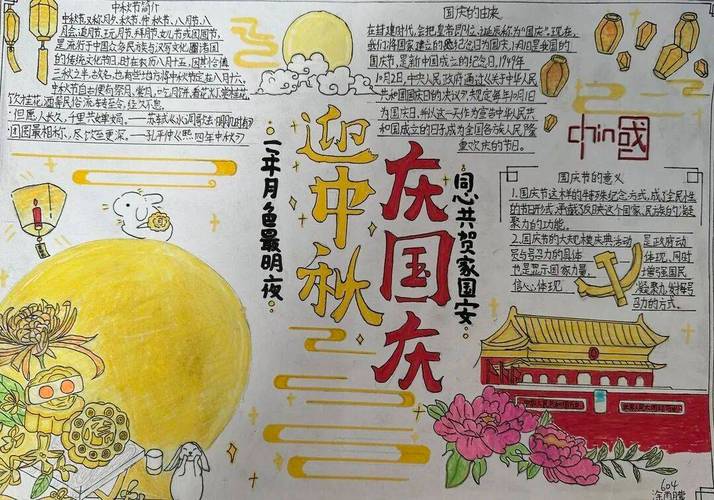 中秋节简介
中秋节又称月夕、秋节、仲秋节、八月节、八
月会、追月节、玩月节、拜月节、女儿节或团圆节，
是流行于中国众多民族与汉字文化圈诸国
的传统文化节日，时在农历八月十五；因其恰值
三秋之半，故名，也有些地方将中秋节定在八月十六。
中秋节自古便有祭月、赏月、吃月饼、看花灯、赏桂花、
饮桂花酒等民俗，流传至今，经久不息。
·但愿人长久，千里共婵娟。——苏轼《水调歌头·明月几时有》
团圆最相称，尽忺至更深。——孔平仲《熙
迎中秋
庆国庆
三年月色最明夜
同心共贺家国安
国庆的由来
在封建时代，会把皇帝即位、诞辰称为“国庆”。现在，
我们将国家建立的纪念日为国庆，10月1日是我国的
国庆节，是新中国成立的纪念日。1949年
10月2日，中央人民政府通过《关于中华人民
共和国国庆日的决议》，规定每年10月1日
为国庆日，并以这一天作为宣告中华人民共
和国成立的日子，成为全国各族人民隆
重欢庆的节日。
chin国
国庆节的意义
1.国庆节这样的特殊纪念方式，成了全民性
的节日形式，承载了反映这个国家、民族的凝
聚力的功能。
2.国庆节的大规模庆典活动 是政府动
员与号召力的具体 体现，同时
也是显示国家力量、 增强国民
信心，体现 凝聚力，发挥号
召力的方式。
604